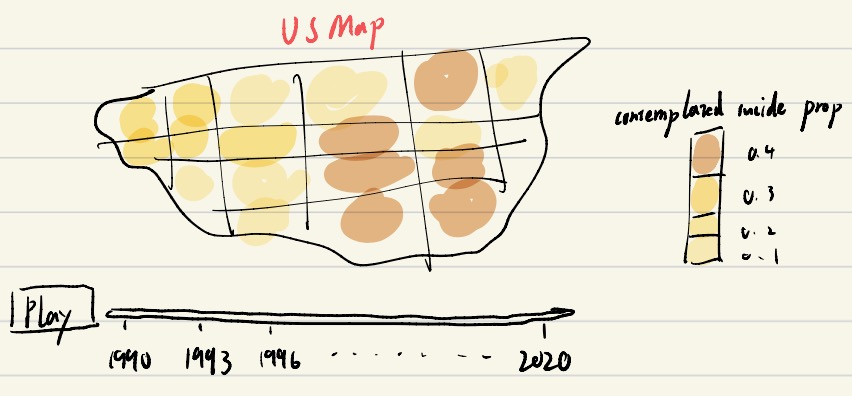 US Map
contemplated suicide prop
0.4
0.3
0.2
0.1
Play
1990 1993 1996 2020